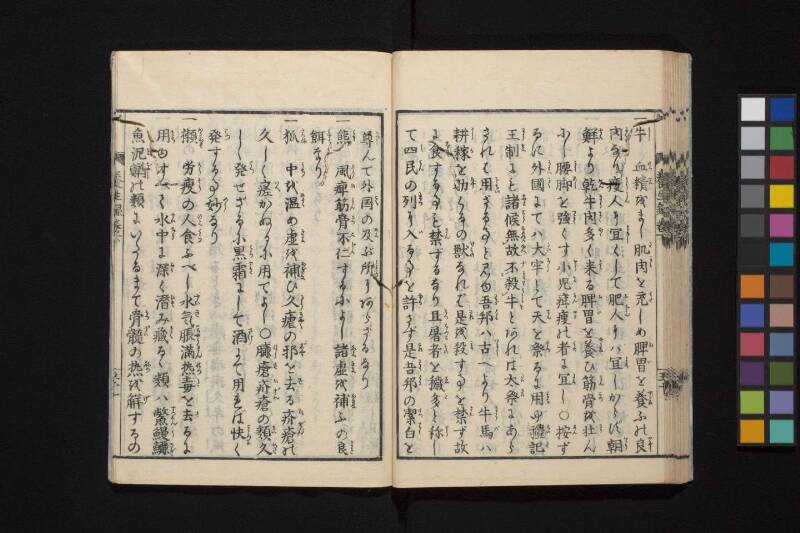 一牛　血精をまし肌肉を充しめ脾胃を養ふの良
肉なり瘦人に宜くして肥人には宜しからず朝
鮮より乾牛肉多く来る脾胃を養ひ筋骨を壮ん
にし腰脚を強くす小児疳瘦の者に宜し○按ず
るに外國にては大牢として天を祭るに用ゆ禮記
王制にも諸候無故不殺牛とあれば太祭にあら
されば用ざること見ゆ吾邦は古へより牛馬は
耕稼を助くるの獣なれば是を殺すことを禁ず故
に食することを禁ずるなり且屠者を穢多と称し
て四民の列に入ることを許さず是吾邦の潔白を
尊んで外国の及ぶ所にあらざるなり
一熊　風痺筋骨不仁するによし諸虚を補ふの良
餌なり
一狐　中を温め虚を補ひ久瘧の邪を去る疥瘡の
久しく瘥かぬるに用てよし○臁瘡疥瘡の類久
しく発せざるに黒霜にして酒にて用れば快く
発すること妙なり
一獺　労瘦の人食ふべし水気脹満熱毒を去るに
用ゆすべて水中に深く潜み蔵るく類は鱉鰻鱅
魚泥鰌の類にいたるまで骨髄の熱を解するの